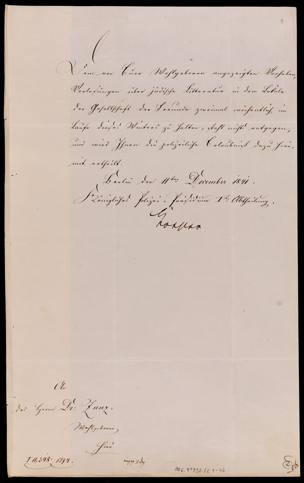 Dem von Euer Wohlgeboren angezeigten Vorhaben,
Vorlesungen über jüdische Litteratur in dem Lokale
der Gesellschaft der Freunde zweimal wöchentlich im
Laufe dieses Winters zu halten, steht nichts entgegen,
und wird Ihnen die polizeiliche Erlaubniß dazu hier-
mit ertheilt.
Berlin den 11ten December 1841.
Königliches Polizei-Präsidium 1te Abtheilung.
An
den Herrn Dr. Zunz.
Wohlgeboren,
hier